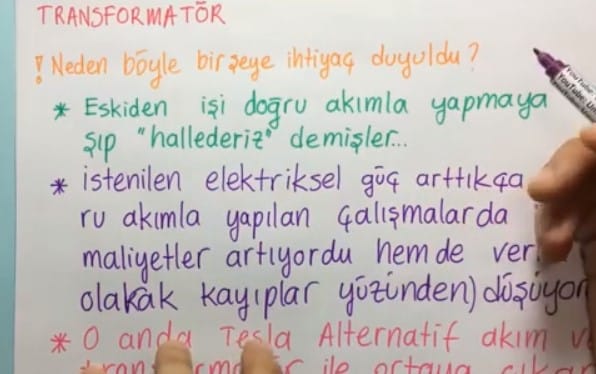 TRANSFORMATÖR
! Neden böyle bir şeye ihtiyaç duyuldu?
* Eskiden işi doğru akımla yapmaya
şıp "hallederiz" demişler...
* istenilen elektriksel güç arttıkça
ru akımla yapılan çalışmalarda
maliyetler artıyordu hem de ver
olakak kayıplar yüzünden) düşüyor
* O anda Tesla Alternatif akım v
ile ortaya çıkar
YouTube: